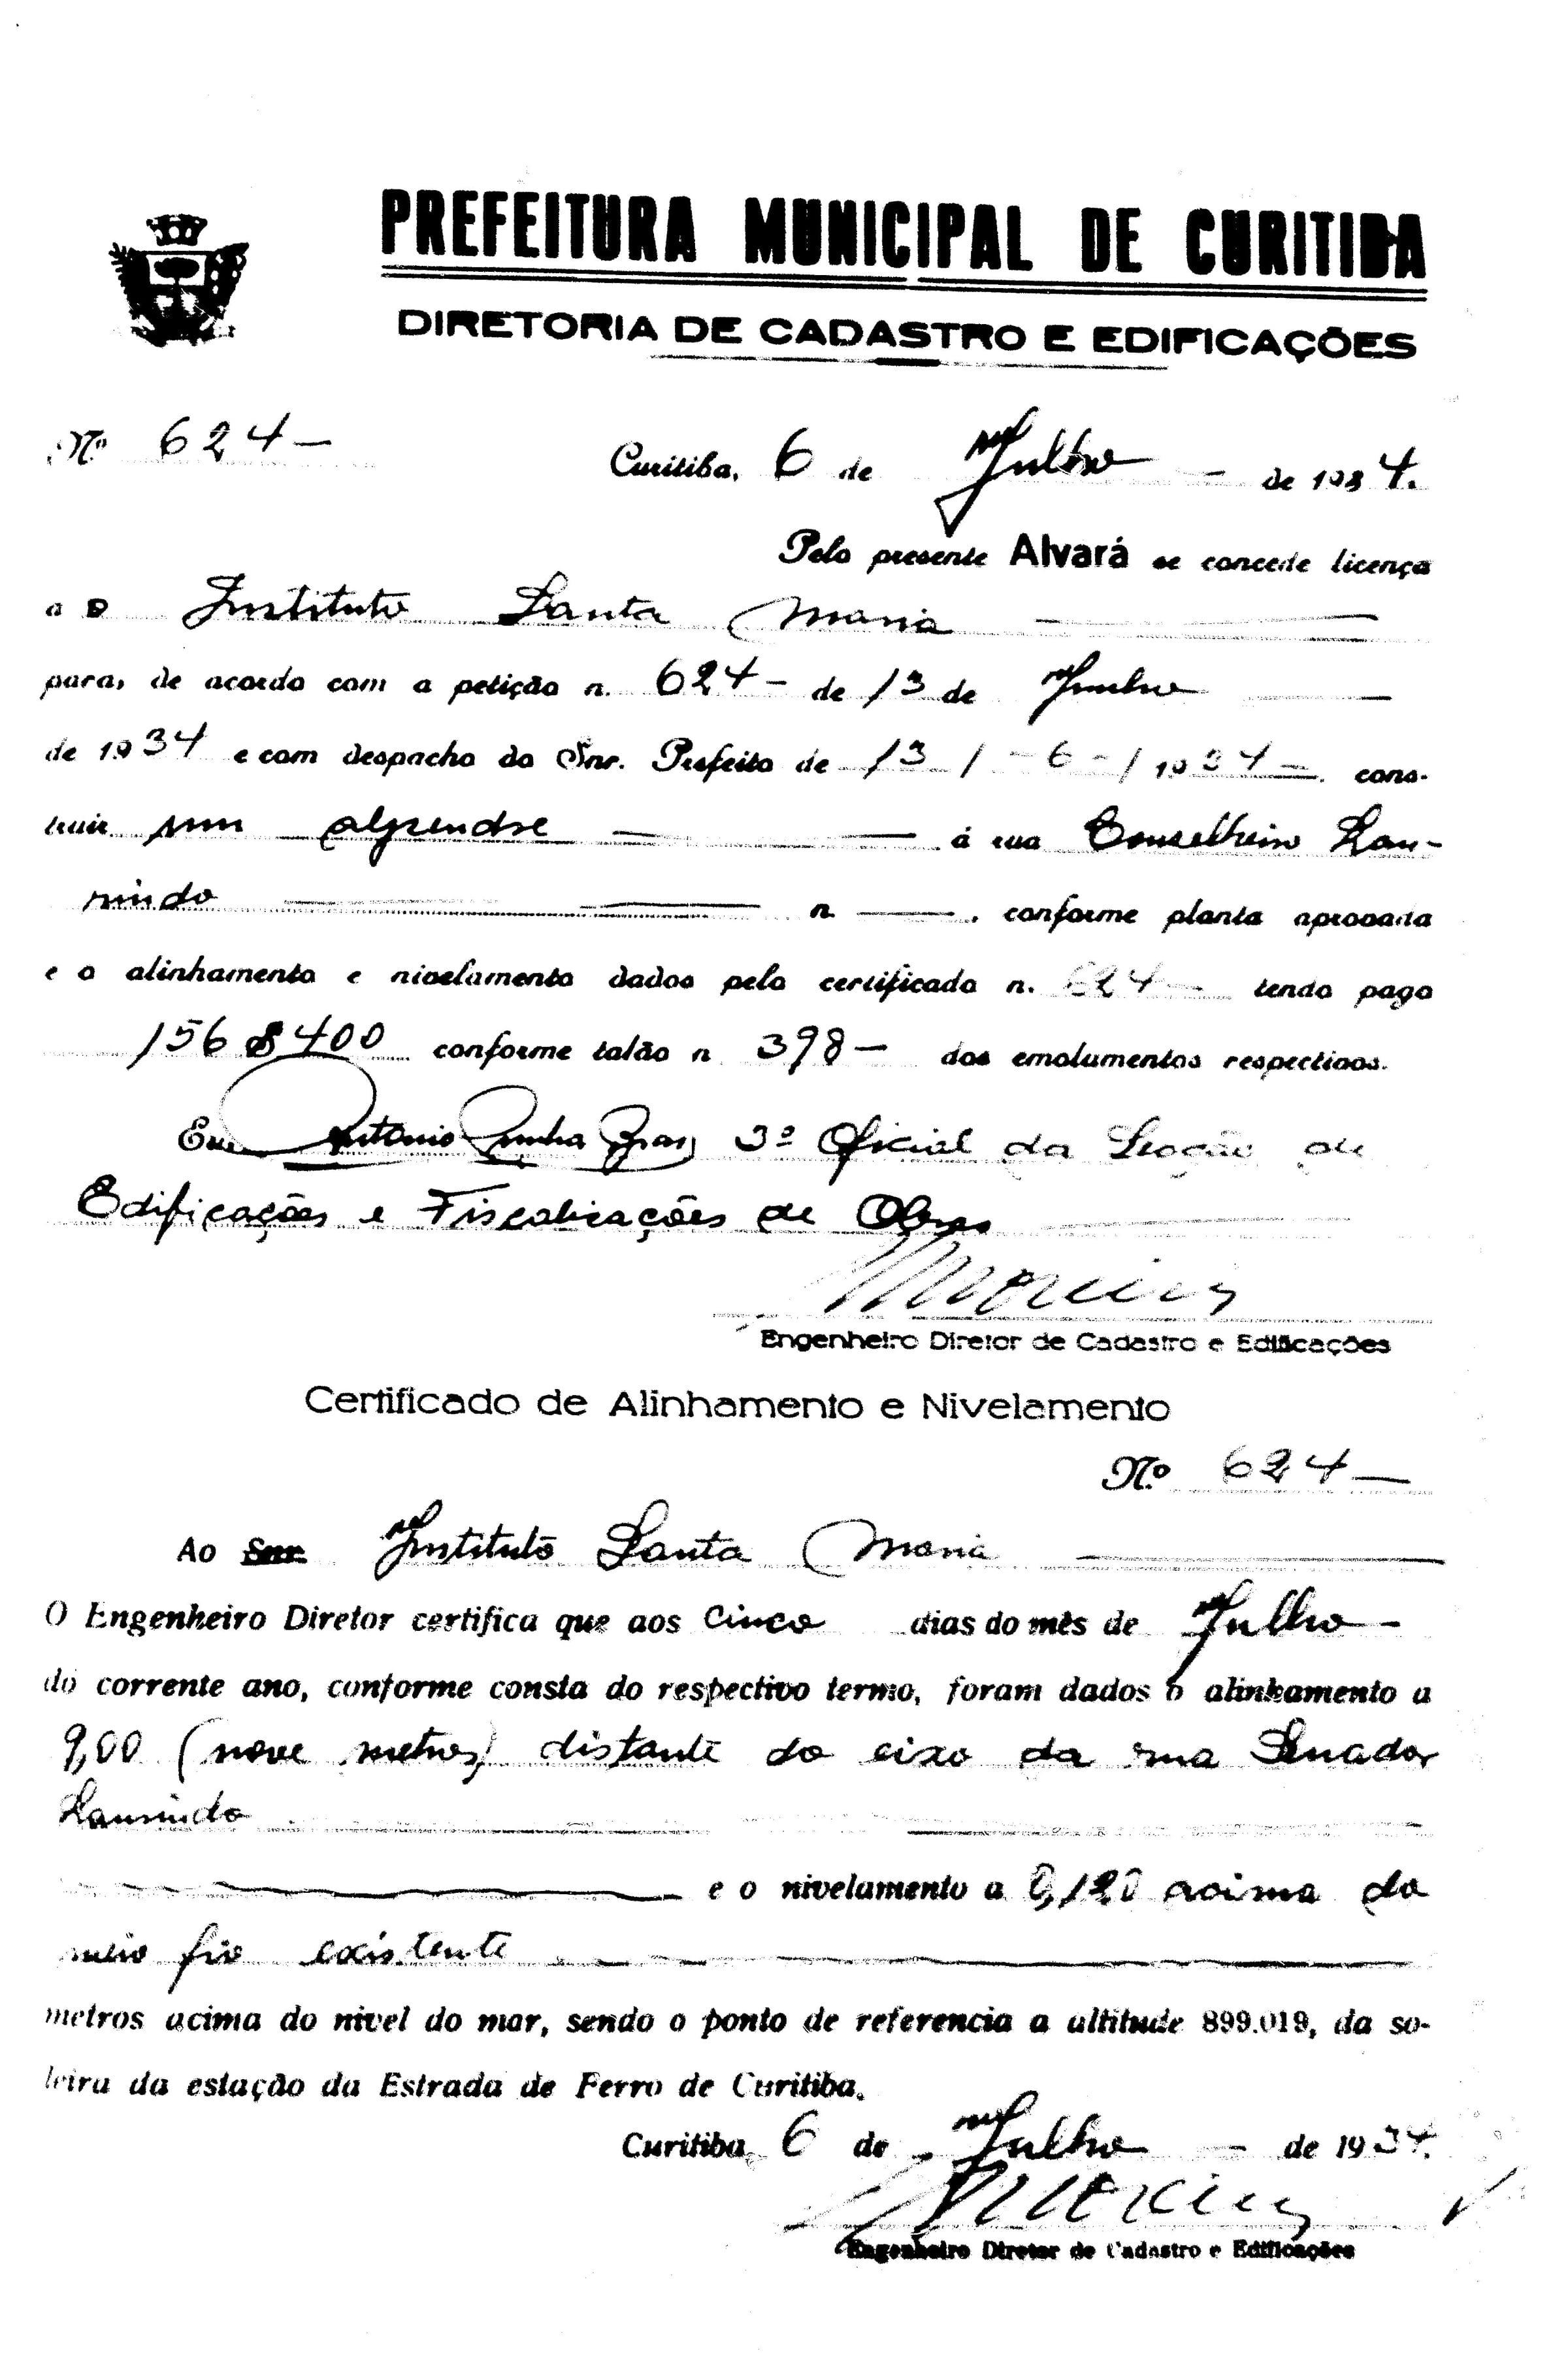 PREFEITURA MUNICIPAL DE CURITIBA
DIRETORIA DE CADASTRO E EDIFICAÇÕES
Nº 624 -
Curitiba, 6 de Julho - de 1934.
Pelo presente Alvará se concede licença
a o Instituto Santa Maria
para, de acordo com a petição n. 624 - de 13 de Junho
de 1934 e com despacho do Snr. Prefeito de 13 / - 6 - / 1934 - cons-
truir um alpendre á rua Conselheiro Lau-
rindo n. , conforme planta aprovada
e o alinhamento e nivelamento dados pelo certificado n. 624 - tendo pago
156$400 conforme talão n 398 - dos emolumentos respectivos.
Eu Antonio Cunha 3º Oficial da Secção de
Edificações e Fiscalizações de Obras
Engenheiro Diretor de Cadastro e Edificações
Certificado de Alinhamento e Nivelamento
Nº 624 -
Ao Snr. Instituto Santa Maria
O Engenheiro Diretor certifica que aos cinco dias do mês de Julho -
do corrente ano, conforme consta do respectivo termo, foram dados o alinhamento a
9,00 (nove metros) distante do eixo da rua Senador
Laurindo
e o nivelamento a 0,120 acima do
meio fio existente
metros acima do nivel do mar, sendo o ponto de referencia a altitude 899.019, da so-
leira da estação da Estrada de Ferro de Curitiba.
Curitiba, 6 de Julho - de 1934.
Engenheiro Diretor de Cadastro e Edificações